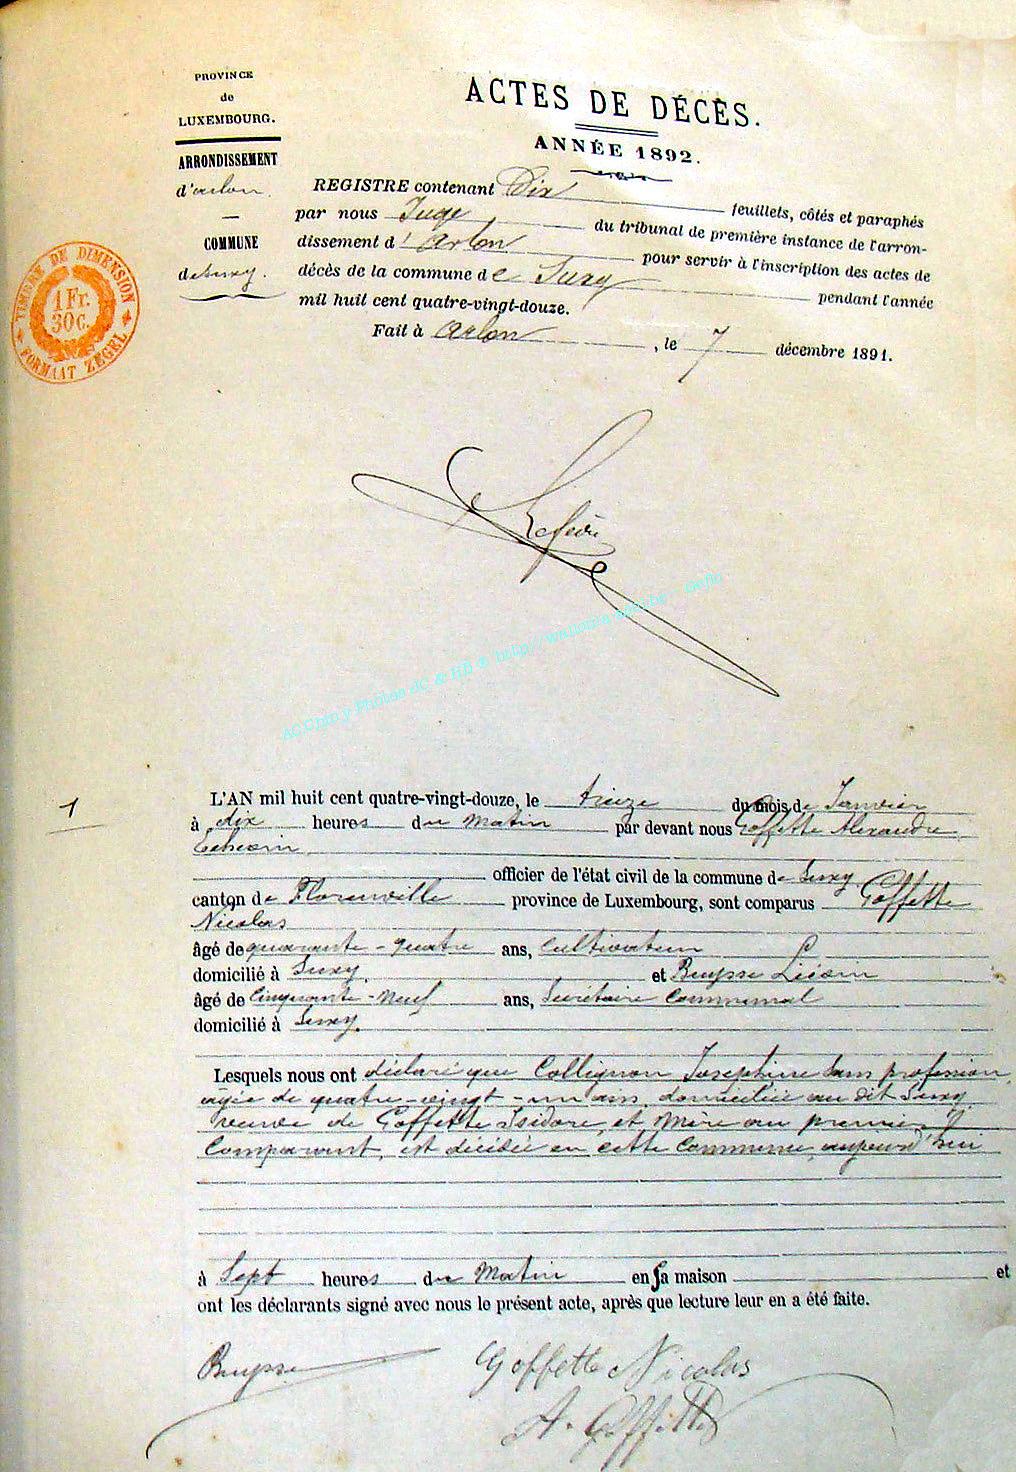 PROVINCE
de
LUXEMBOURG.
ARRONDISSEMENT
d'arlon.
COMMUNE
de Suxy.
TIMBRE DE DIMENSION
1 Fr.
30 C.
FORMAAT ZEGEL
ACTES DE DÉCÈS.
ANNÉE 1892.
REGISTRE contenant Dix feuillets, côtés et paraphés
par nous Juge du tribunal de première instance de l'arron-
dissement d'Arlon pour servir à l'inscription des actes de
décès de la commune de Suxy pendant l'année
mil huit cent quatre-vingt-douze.
Fait à Arlon, le 7 décembre 1891.
1
L'AN mil huit cent quatre-vingt-douze, le treize du mois de Janvier
à dix heures du matin par devant nous Goffette Alexandre
Echevin
officier de l'état civil de la commune de Suxy
canton de Florenville province de Luxembourg, sont comparus Goffette
Nicolas
âgé de quarante-quatre ans, cultivateur
domicilié à Suxy. et Buysse
âgé de Cinquante-neuf ans, Secrétaire Communal
domicilié à Suxy.
Lesquels nous ont déclaré que Collignon Josephine Sans profession,
agée de quatre-vingt-un ans, domiciliée au dit Suxy
veuve de Goffette Isidore, et Mère au premier
Comparant, est décédée en cette Commune, aujourd'hui
à Sept heures du Matin en Sa maison et
ont les déclarants signé avec nous le présent acte, après que lecture leur en a été faite.
Buysse Goffette Nicolas
A. Goffette
AC Chiny Photos JC & HB © http//